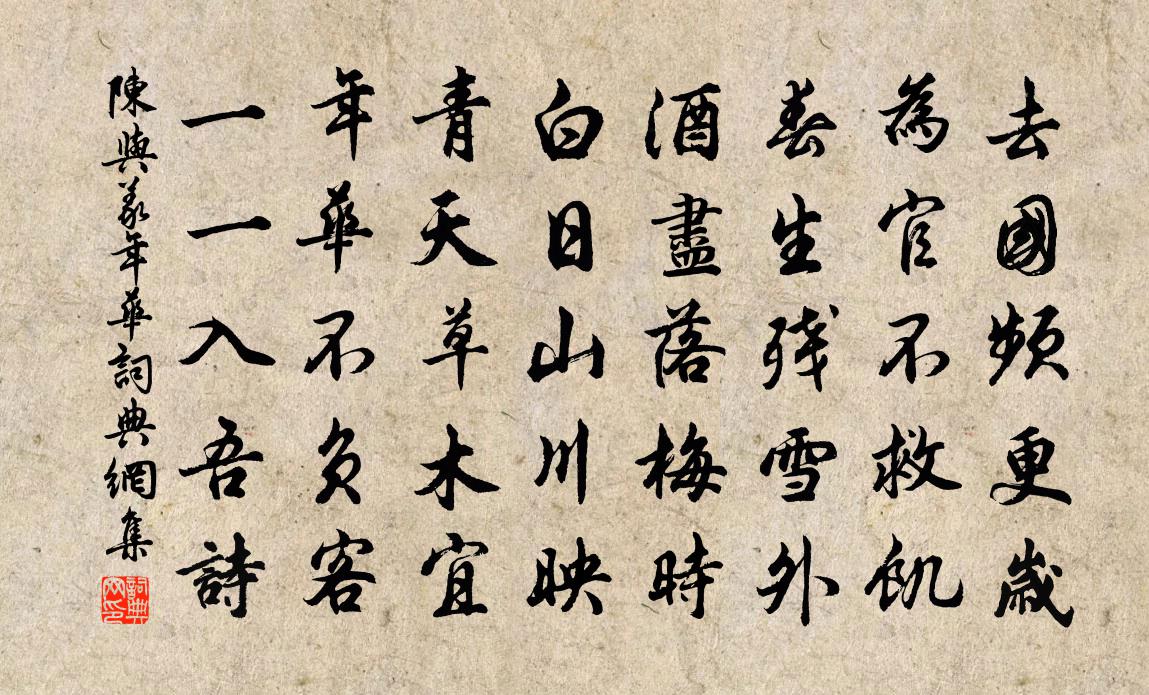 去國頻更歲
為官不救飢
春生殘雪外
酒盡落梅時
白日山川映
青天草木宜
年華不負客
一一入吾詩
陳與義年華詞典網集
詞典網印